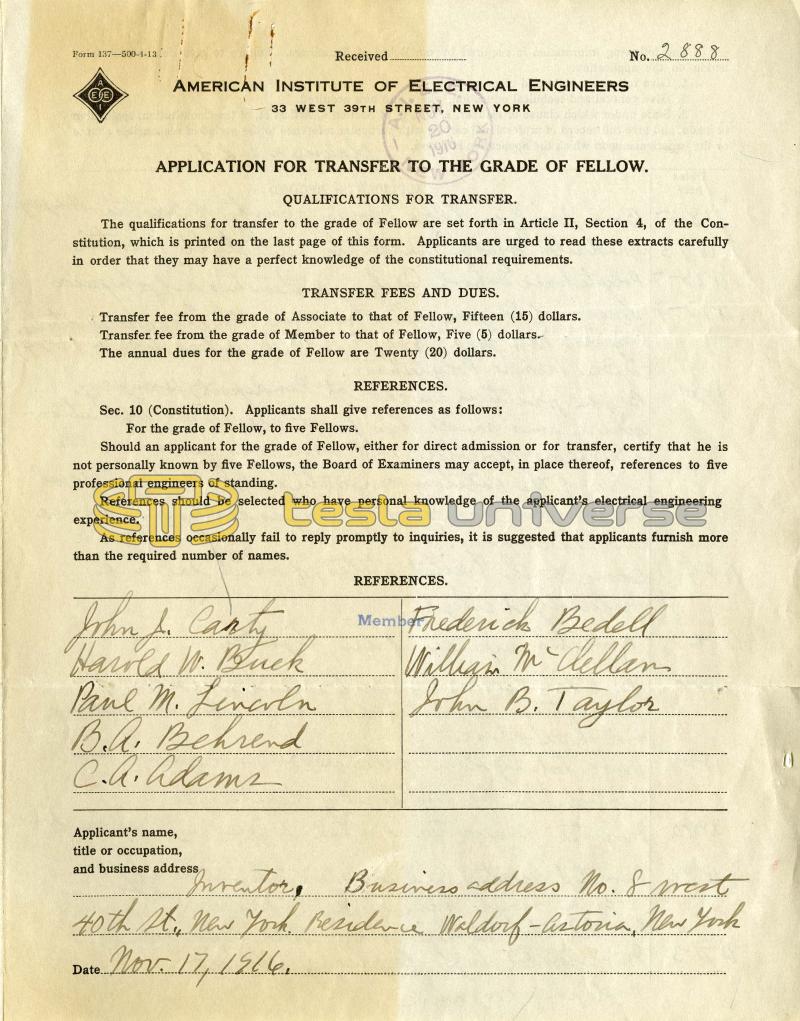 Form 137—500-4-13
Received
No. 2888
AMERICAN INSTITUTE OF ELECTRICAL ENGINEERS
33 WEST 39TH STREET, NEW YORK
A
E E
I
20
1916
APPLICATION FOR TRANSFER TO THE GRADE OF FELLOW.
QUALIFICATIONS FOR TRANSFER.
The qualifications for transfer to the grade of Fellow are set forth in Article II, Section 4, of the Con-
stitution, which is printed on the last page of this form. Applicants are urged to read these extracts carefully
in order that they may have a perfect knowledge of the constitutional requirements.
TRANSFER FEES AND DUES.
Transfer fee from the grade of Associate to that of Fellow, Fifteen (15) dollars.
Transfer fee from the grade of Member to that of Fellow, Five (5) dollars.
The annual dues for the grade of Fellow are Twenty (20) dollars.
REFERENCES.
Sec. 10 (Constitution). Applicants shall give references as follows:
For the grade of Fellow, to five Fellows.
Should an applicant for the grade of Fellow, either for direct admission or for transfer, certify that he is
not personally known by five Fellows, the Board of Examiners may accept, in place thereof, references to five
professional engineers of standing.
References should be selected who have personal knowledge of the applicant's electrical engineering
experience.
tesla universe
As references occasionally fail to reply promptly to inquiries, it is suggested that applicants furnish more
than the required number of names.
REFERENCES.
John J. Carty
Harold W. Buck
Paul M. Lincoln
B.A. Behrend
C.A. Adams
Member
Frederick Bedell
William McClellan
John B. Taylor
Applicant's name,
title or occupation,
and business address
Inventor, Business address No. 8 West
40th St., New York. Residence Waldorf-Astoria, New York
Date Nov. 17, 1916.